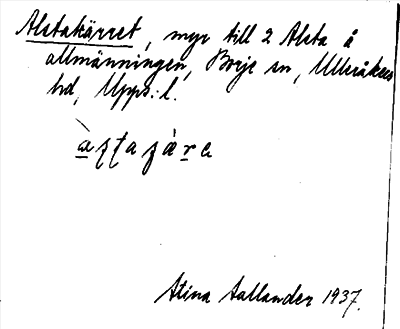 Alstakärret, myr till 2 Alsta å
allmänningen, Börje sn, Ulleråkers
hd, Upps. l.
Stina Aallander 1937.